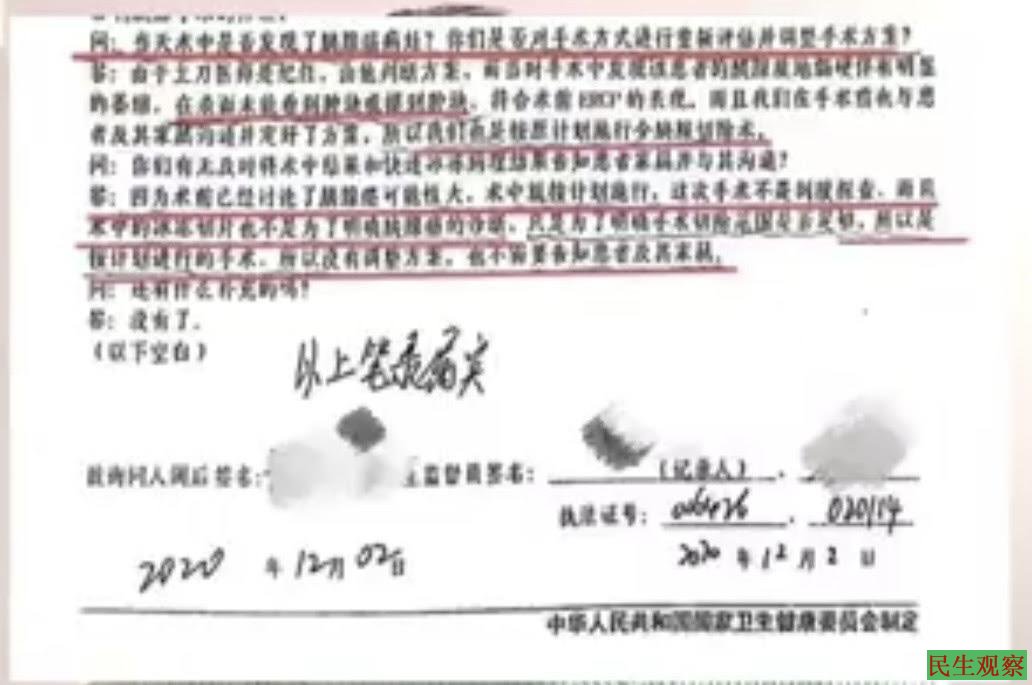 问：当天术中是否发现了胰腺癌病灶？你们是否对手术方式进行重新评估并调整手术方案？
答：由于主刀医师是纪住，由他判断方案，而当时手术中发现该患者的胰腺质地偏硬伴有明显
的萎缩，在表面未能看到肿块或摸到肿块，符合术前ERCP的表现，而且我们在手术前也与患
者及其家属沟通并定好了方案，所以我们还是按原计划施行全胰腺切除术。
问：你们有无及时将术中结果和快速冰冻病理结果告知患者家属并与其沟通？
答：因为术前已经讨论了胰腺癌可能性大，术中就按计划施行，这次手术不是剖腹探查，而且
术中的冰冻切片也不是为了明确胰腺癌的诊断，只是为了明确手术切除范围是否足够，所以是
按计划进行的手术，所以没有调整方案，也不需要告知患者及其家属。
问：还有什么补充的吗？
答：没有了。
（以下空白）
以上笔录属实
被询问人阅后签名： 监督员签名： （记录人）、
执法证号： 、020114
2020 年 12月 02日 2020 年 12 月 2 日
中华人民共和国国家卫生健康委员会制定
民生观察